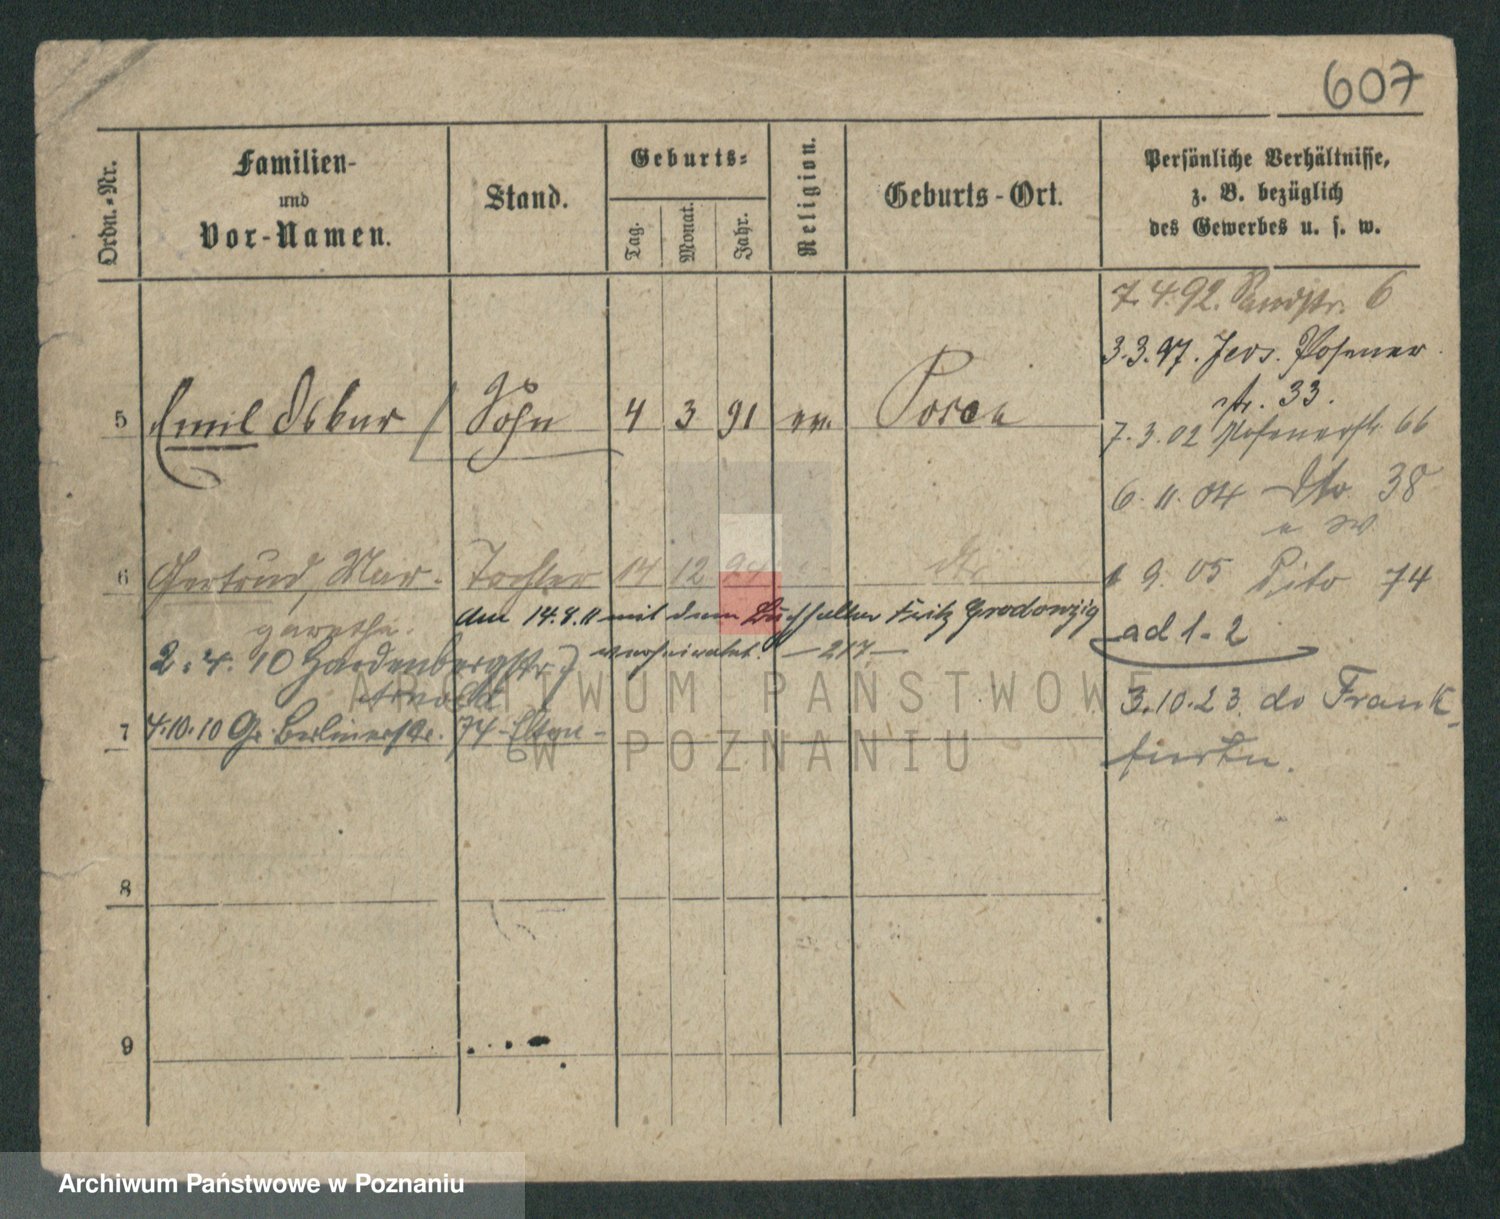 607
Ordn.-Nr.
Familien-
und
Vor-Namen.
Stand.
Geburts-
Tag.
Monat.
Jahr.
Religion.
Geburts-Ort.
Persönliche Verhältnisse,
z. B. bezüglich
des Gewerbes u. s. w.
7.4.92. Sandstr. 6
3.3.97. Posener
str. 33.
5 Emil Oskar Sohn 4 3 91 ev. Posen
7.3.02 Posenerstr. 66
6.11.04 dto 38
6 Gertrud, Mar- Tochter 14 12 94 dto
garethe.
9. 05 Dito 74
Am 14.8.11 mit dem Buchhalter Fritz Grodowzig
verheiratet. —217—
ad 1-2
2.4.10 Hardenbergstr. 7
3.10.23. do Frank-
furt
7 4.10.10 Gr. Berlinerstr. 74 Eltern
8
9
ARCHIWUM PAŃSTWOWE
W POZNANIU
Archiwum Państwowe w Poznaniu